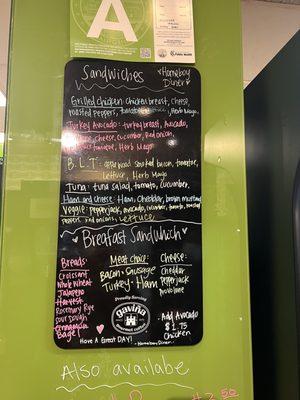 A
Sandwiches
Homeboy
Diner
Grilled chicken: chicken breast, cheese,
roasted peppers, tomato, lettuce, Herb Mayo.
Turkey Avocado: turkey breast, Avocado,
cheese, cucumber, Red onion,
tomatoe, Herb Mayo
B.L.T: applewood smoked bacon, tomatoe,
lettuce, Herb Mayo
Tuna: tuna salad, tomato, cucumber.
Ham and Cheese: Ham, Cheddar, brown mustard
Veggie: pepperjack, avocado, cucumber, tomato, roasted
peppers, red onion, Lettuce
Breakfast Sandwhich
Breads:
Croissant
Whole Wheat
Jalapeno
Harvest
Rosemary Rye
Sour Dough
Bagel
Meat choice:
Bacon • Sausage
Turkey • Ham
Cheese:
Cheddar
Pepperjack
Provolone
Proudly Serving
gaviña
GOURMET COFFEE
• Add Avocado
$1.75
Chicken
Have A Great DAY!
- Homeboy Diner -
Also availabe